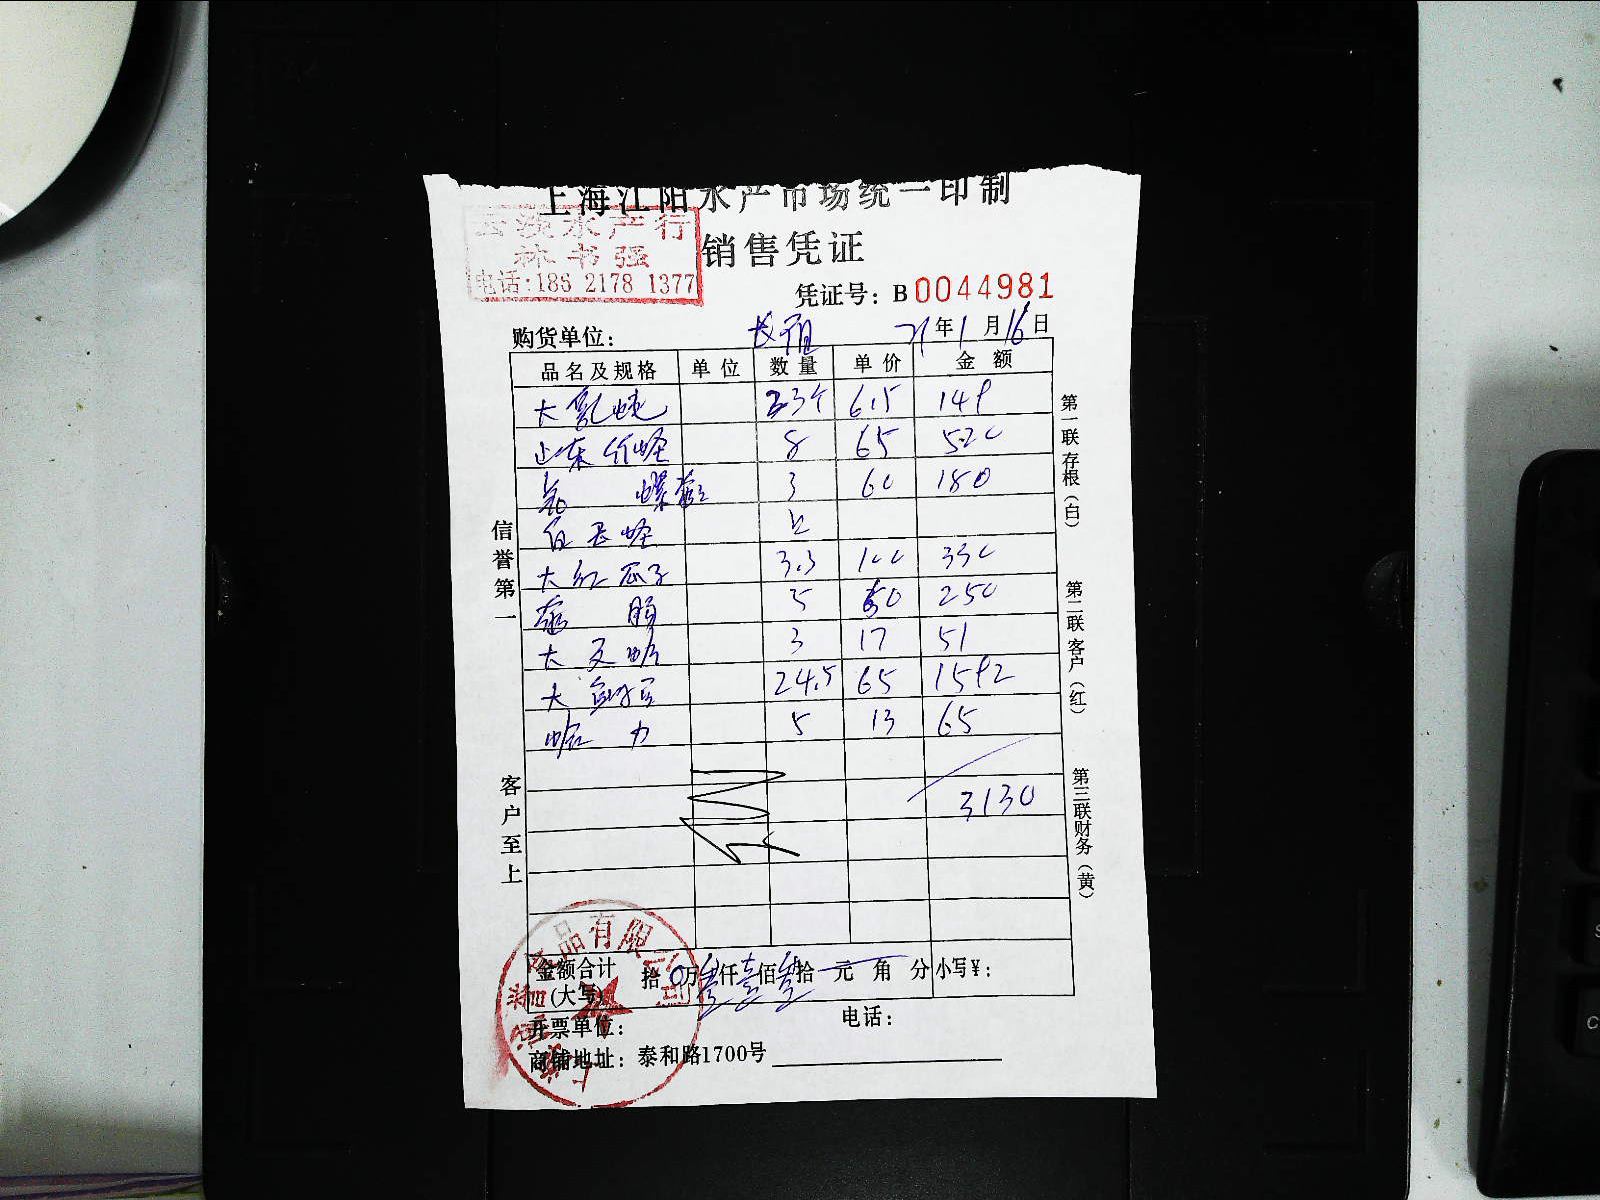 上海江阳水产市场统一印制
水产行
林书强
电话:186 2178 1377
销售凭证
凭证号: B0044981
购货单位:
21年1月16日
品名及规格 单位 数量 单价 金额
大 23个 6.5 149
山东竹蛏 8 65 520
螺 3 60 180
白 蛏
大红瓜子 3.3 100 330
5 50 250
大文蛤 3 17 51
大 24.5 65 1592
蛤 5 13 65
3130
信誉第一
客户至上
第一联存根(白)
第二联客户(红)
第三联财务(黄)
金额合计(大写) 拾0万叁仟壹佰叁拾 元 角 分 小写¥:
品有限公司
开票单位: 电话:
商铺地址: 泰和路1700号